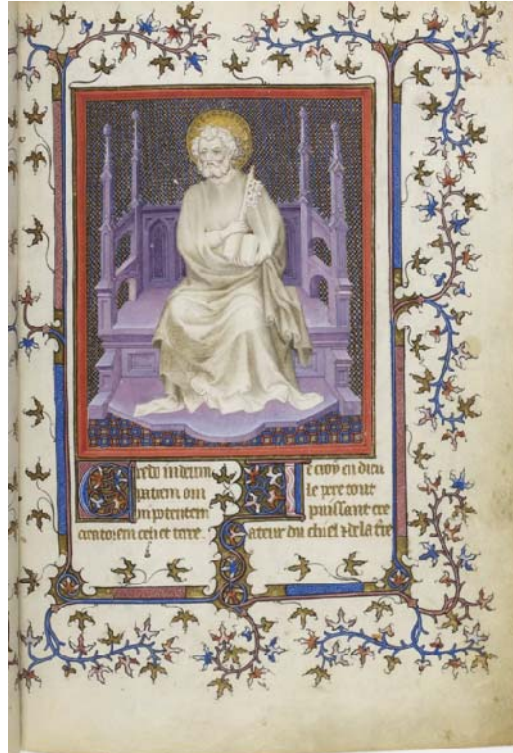 Credo in deum
patrem om
nipotentem
creatorem celi et terre.
Je croy en dieu
le pere tout
puissant cre
ateur du ciel & de la tre